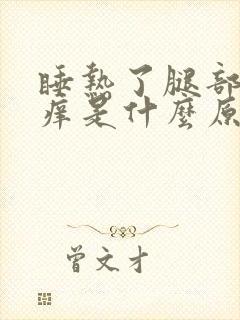 睡熱了腿部
痒是什麼原
曾文才